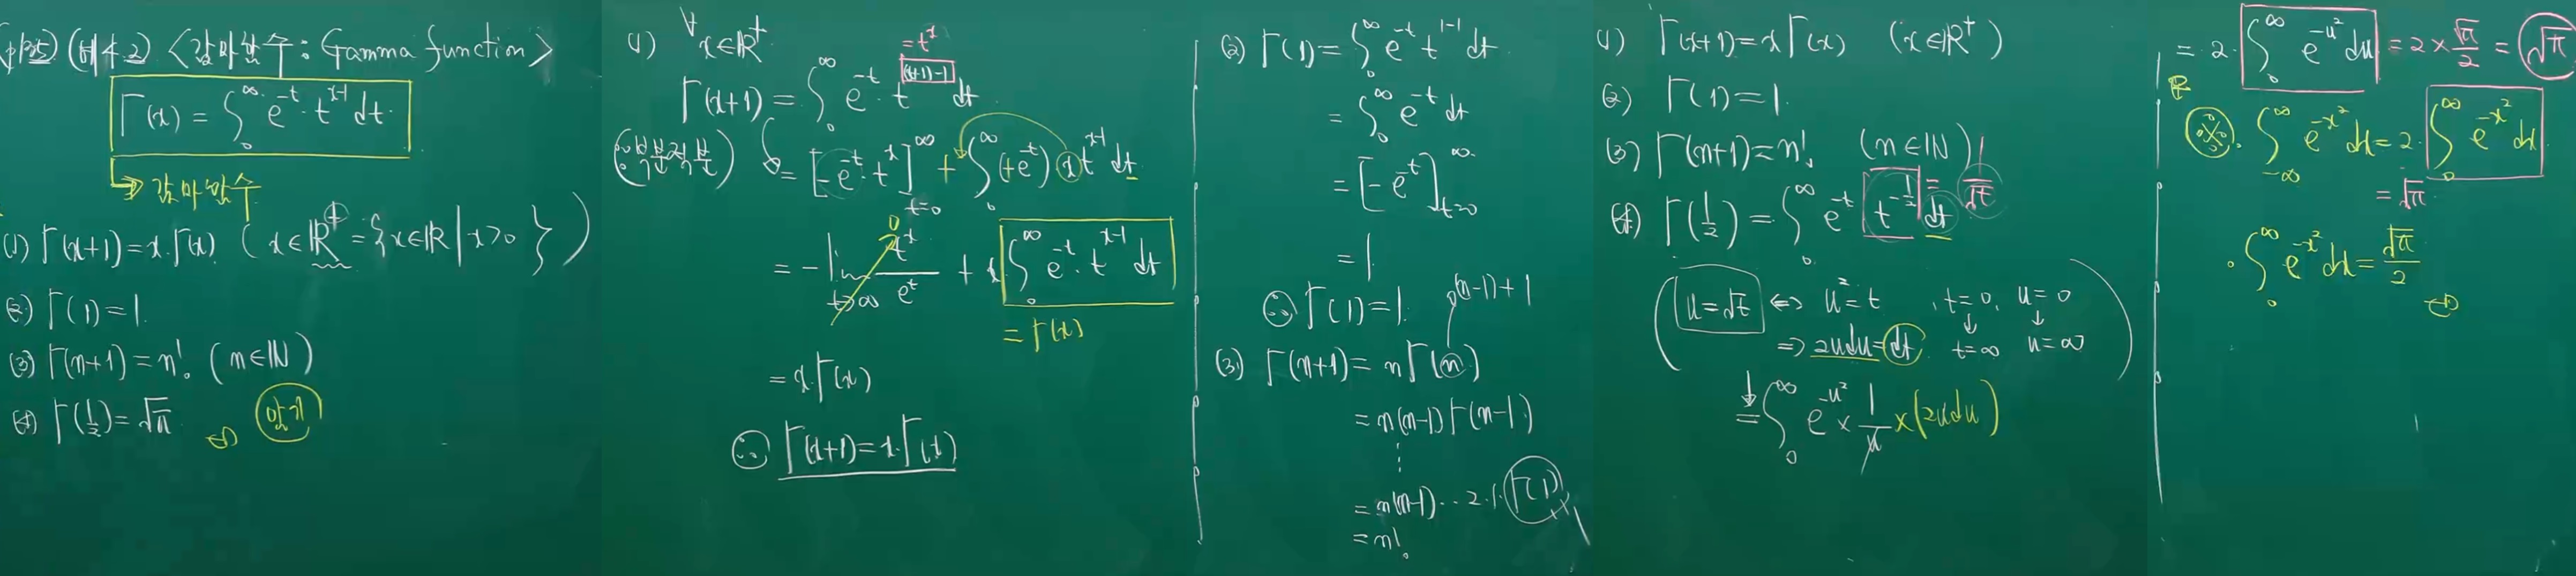 <감마함수 : Gamma function>
Γ(x) = ∫₀^∞ e^{-t}·t^{x-1} dt
→ 감마함수
(1) Γ(x+1) = x·Γ(x) (x∈ℝ⁺ = {x∈ℝ | x>0})
(2) Γ(1) = 1.
(3) Γ(n+1) = n! (n∈ℕ)
(4) Γ(1/2) = √π 암기
(1) ∀x∈ℝ⁺
= t^x
Γ(x+1) = ∫₀^∞ e^{-t}·t^{(x+1)-1} dt
(∵ 부분적분)
= [-e^{-t}·t^x]_{t=0}^∞ + ∫₀^∞ (+e^{-t}) x t^{x-1} dt
= -lim_{t→∞} t^x/e^t + x ∫₀^∞ e^{-t}·t^{x-1} dt
0
= Γ(x)
= x·Γ(x)
∴ Γ(x+1) = x·Γ(x)
(2) Γ(1) = ∫₀^∞ e^{-t} t^{1-1} dt
= ∫₀^∞ e^{-t} dt
= [-e^{-t}]_{t=0}^∞
= 1.
∴ Γ(1) = 1.
(n-1)+1
(3) Γ(n+1) = nΓ(n)
= n(n-1)Γ(n-1)
⋮
= n(n-1)···2·1·Γ(1)
1
= n!
(1) Γ(x+1) = xΓ(x) (x∈ℝ⁺)
(2) Γ(1) = 1.
(3) Γ(n+1) = n! (n∈ℕ)
(4) Γ(1/2) = ∫₀^∞ e^{-t} t^{-1/2} dt
= 1/√t
(u=√t ⇔ u²=t, t=0, u=0
↓ ↓
⇒ 2udu = dt t=∞ u=∞)
↓
= ∫₀^∞ e^{-u²} × 1/u × (2udu)
= 2·∫₀^∞ e^{-u²} du = 2 × √π/2 = √π
※. ∫_{-∞}^∞ e^{-x²} dx = 2·∫₀^∞ e^{-x²} dx
= √π
∫₀^∞ e^{-x²} dx = √π/2